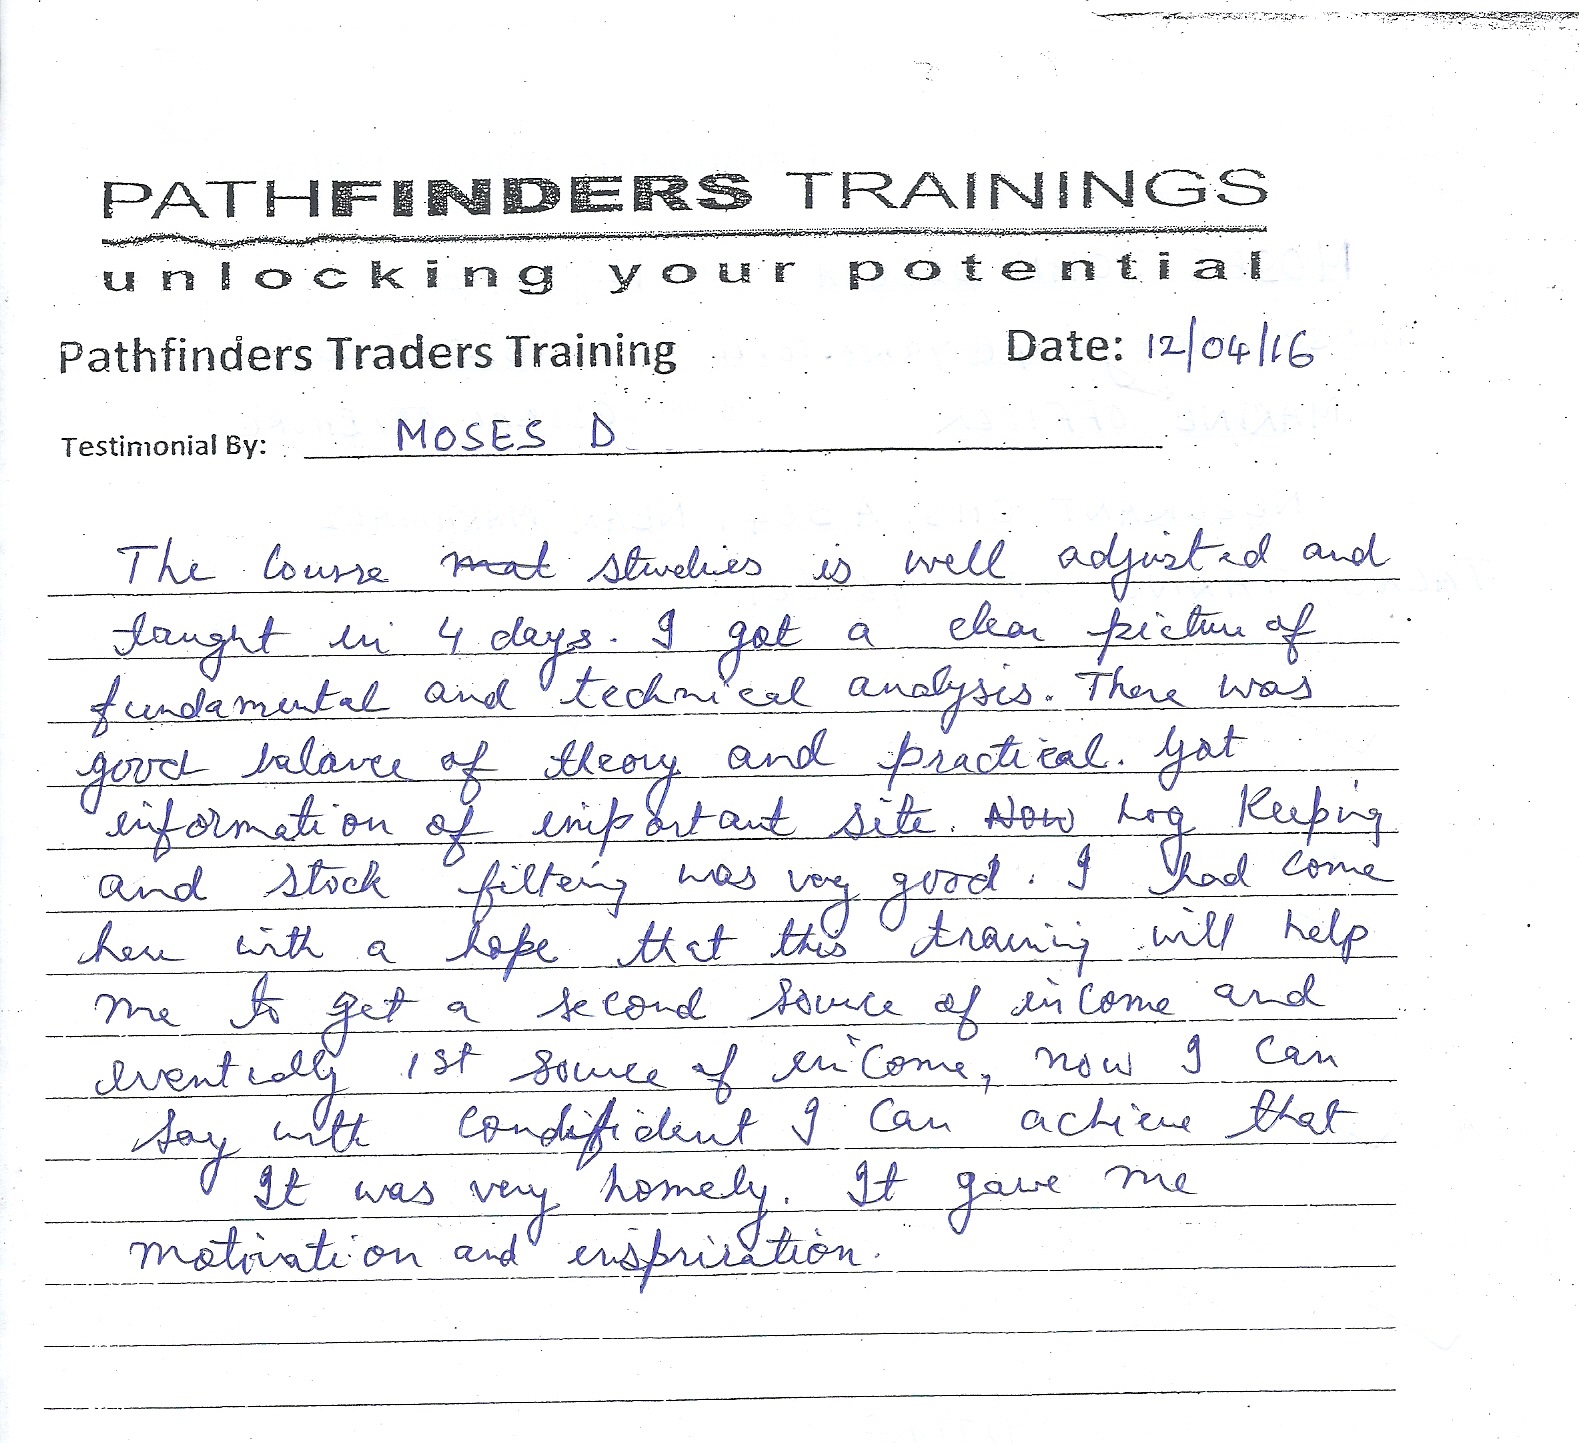 PATHFINDERS TRAININGS
unlocking your potential
Pathfinders Traders Training Date: 12/04/16
Testimonial By: MOSES D
The Course mat studies is well adjusted and
taught in 4 days. I got a clear picture of
fundamental and technical analysis. There was
good balance of theory and practical. Got
information of important site. Now Log Keeping
and stock filtering was very good. I had come
here with a hope that this training will help
me to get a second source of income and
eventually 1st source of income, now I can
say with condifident I can achieve that
It was very homely. It gave me
motivation and insprisation.